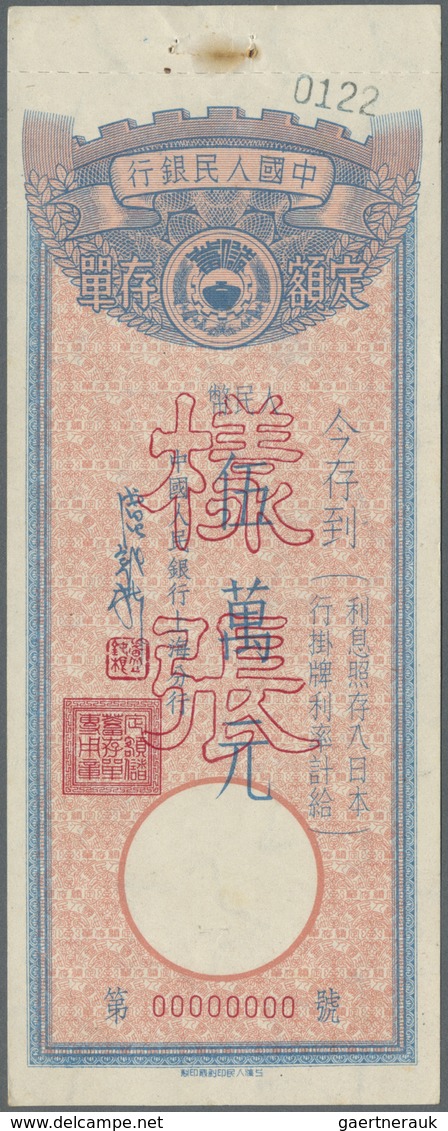 0122
中國人民銀行
定額存單
今存到
(利息照存入日本
行掛牌利率計給)
人民幣
伍萬元
樣張
中國人民銀行上海分行
定額儲
蓄存單
專用章
第 00000000 號
gaertnerauk